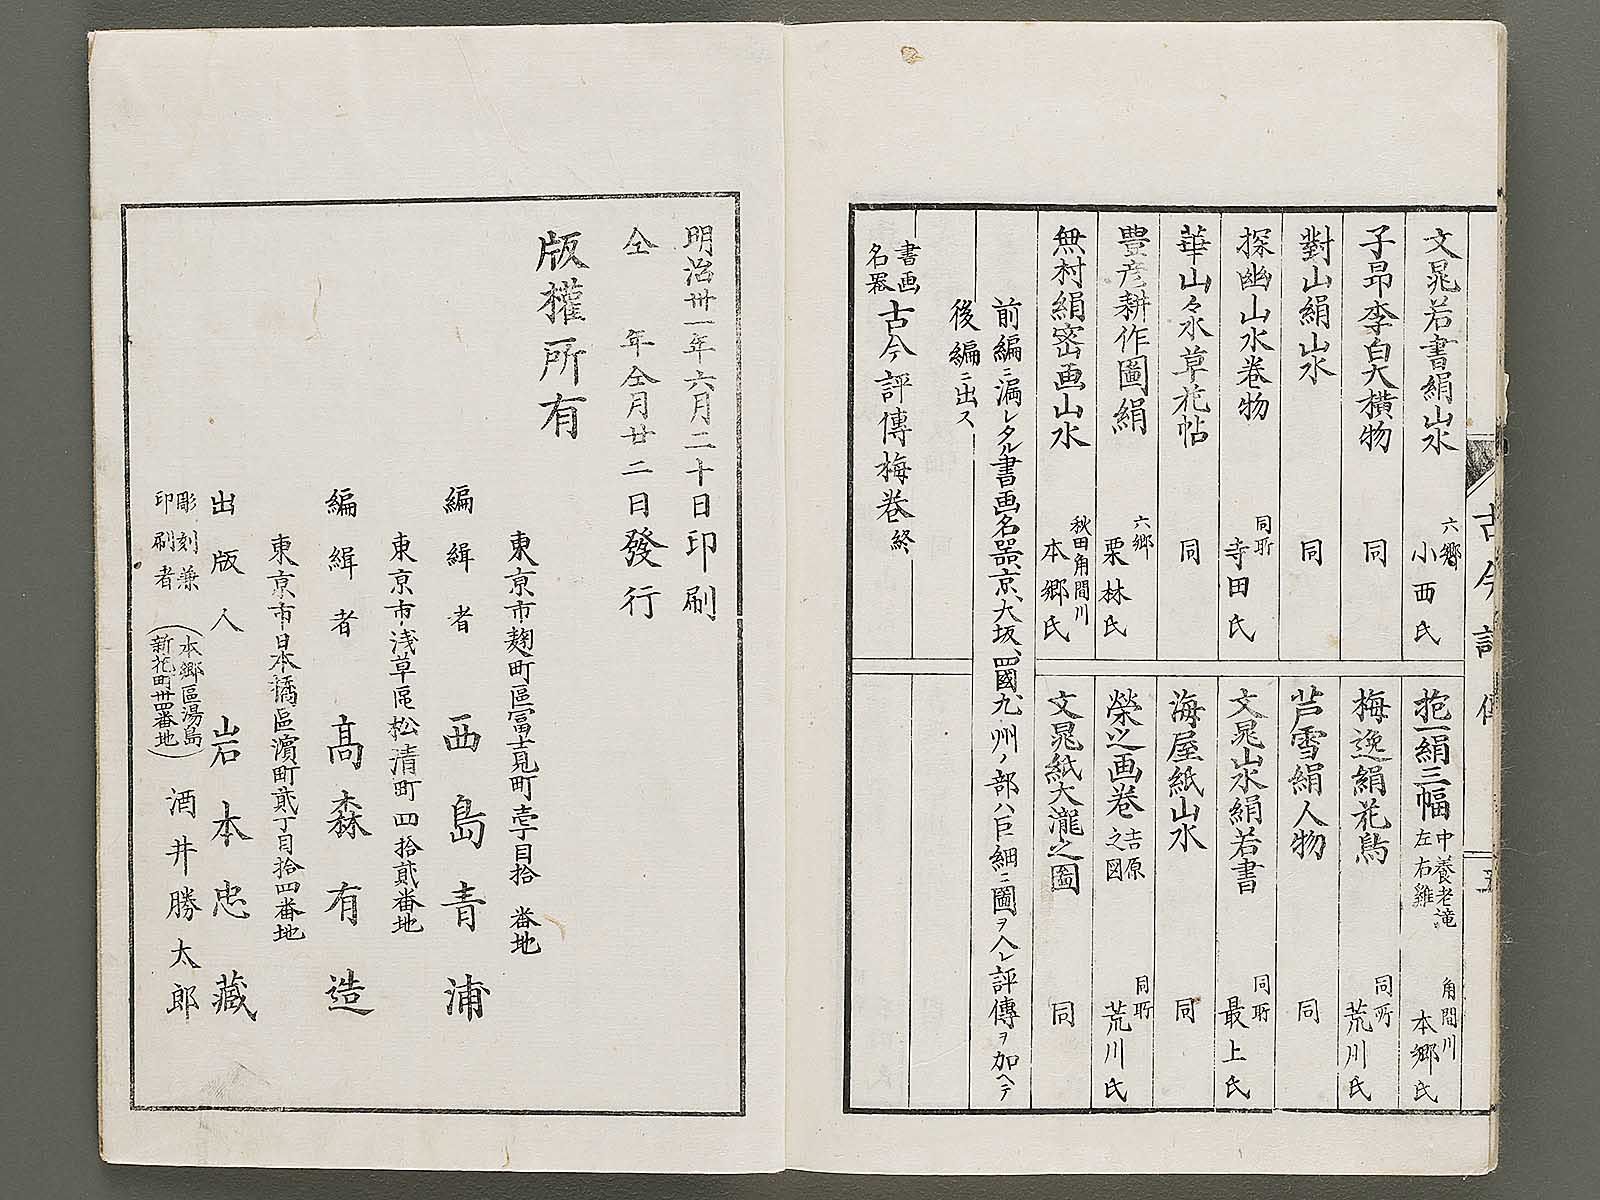 文晁若書絹山水 六郷 小西氏
子昂李白大横物 同
對山絹山水 同
探幽山水巻物 同所 寺田氏
華山々水草花帖 同
豊彦耕作圖絹 六郷 栗林氏
無村絹密画山水 秋田角間川 本郷氏
抱一絹三幅 中養老滝 左右雞 角間川 本郷氏
梅逸絹花鳥 同所 荒川氏
芦雪絹人物 同
文晁山水絹若書 同所 最上氏
海屋紙山水 同
榮之画巻 吉原之図 同所 荒川氏
文晁紙大瀧之圖 同
前編ニ漏レタル書画名器京、大坂、四國、九州ノ部ハ巨細ニ圖ヲ入レ評傳ヲ加ヘテ
後編ニ出ス
書画名器 古今評傳梅巻終
古今評傳
五
明治卅一年六月二十日印刷
仝 年仝月廿二日發行
版權所有
東京市麹町區富士見町壱丁目拾 番地
編緝者 西島青浦
東京市浅草區松清町四拾貳番地
編緝者 高森有造
東京市日本橋區濱町貳丁目拾四番地
出版人 岩本忠藏
彫刻兼印刷者 (本郷區湯島新花町卅四番地) 酒井勝太郎